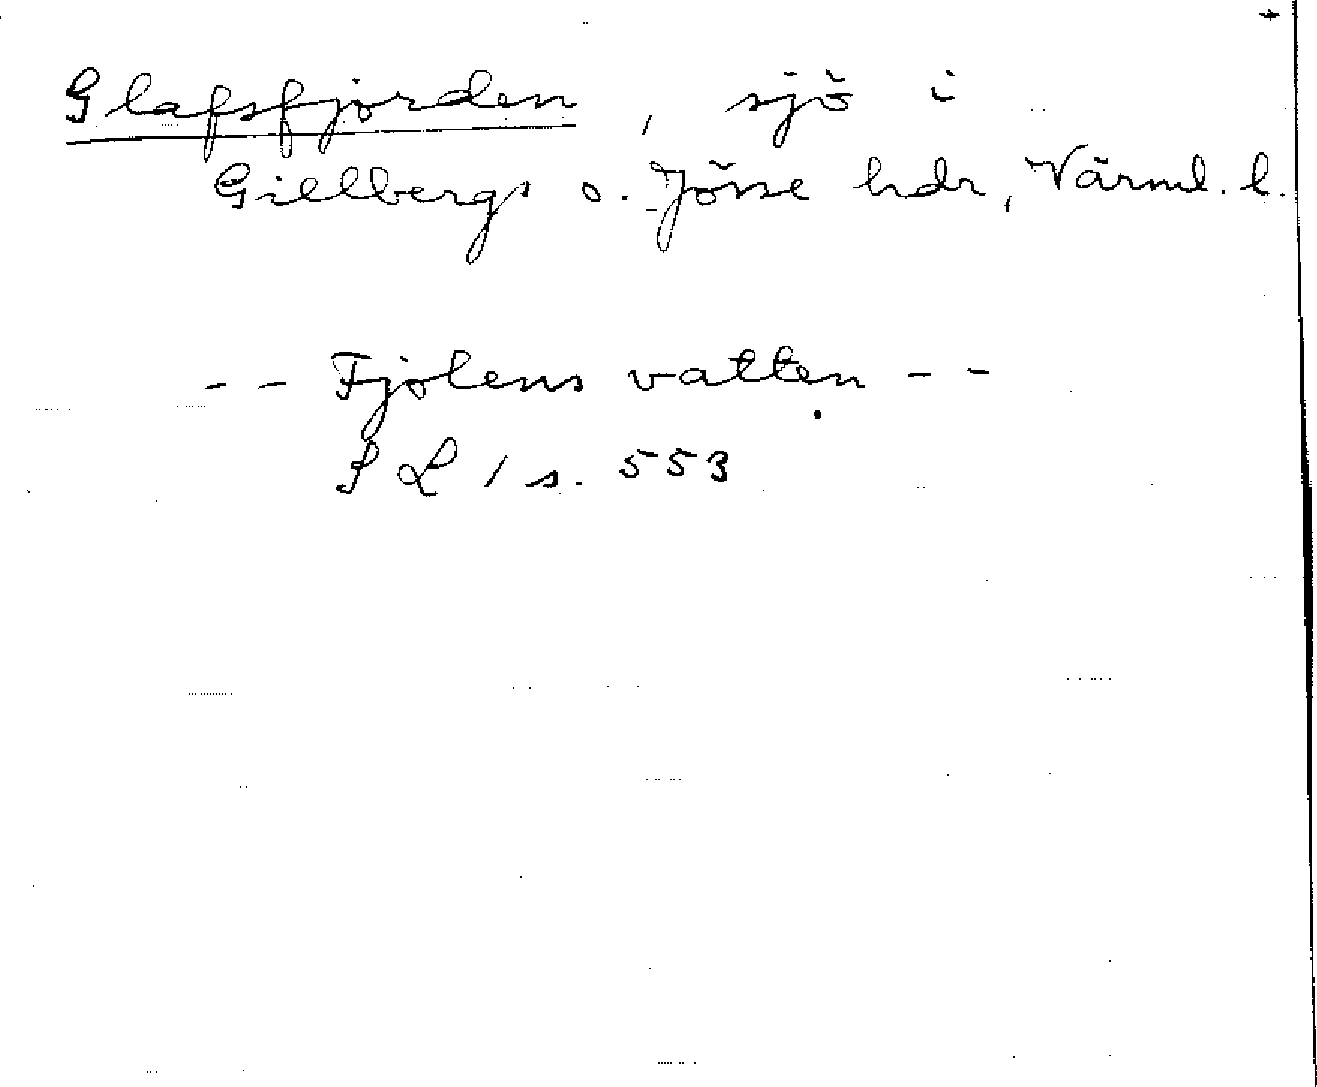 Glafsfjorden, sjö i
Gillbergs o. Jösse hdr, Värml. l.
-- Fjolens vatten --
SL 1 s. 553